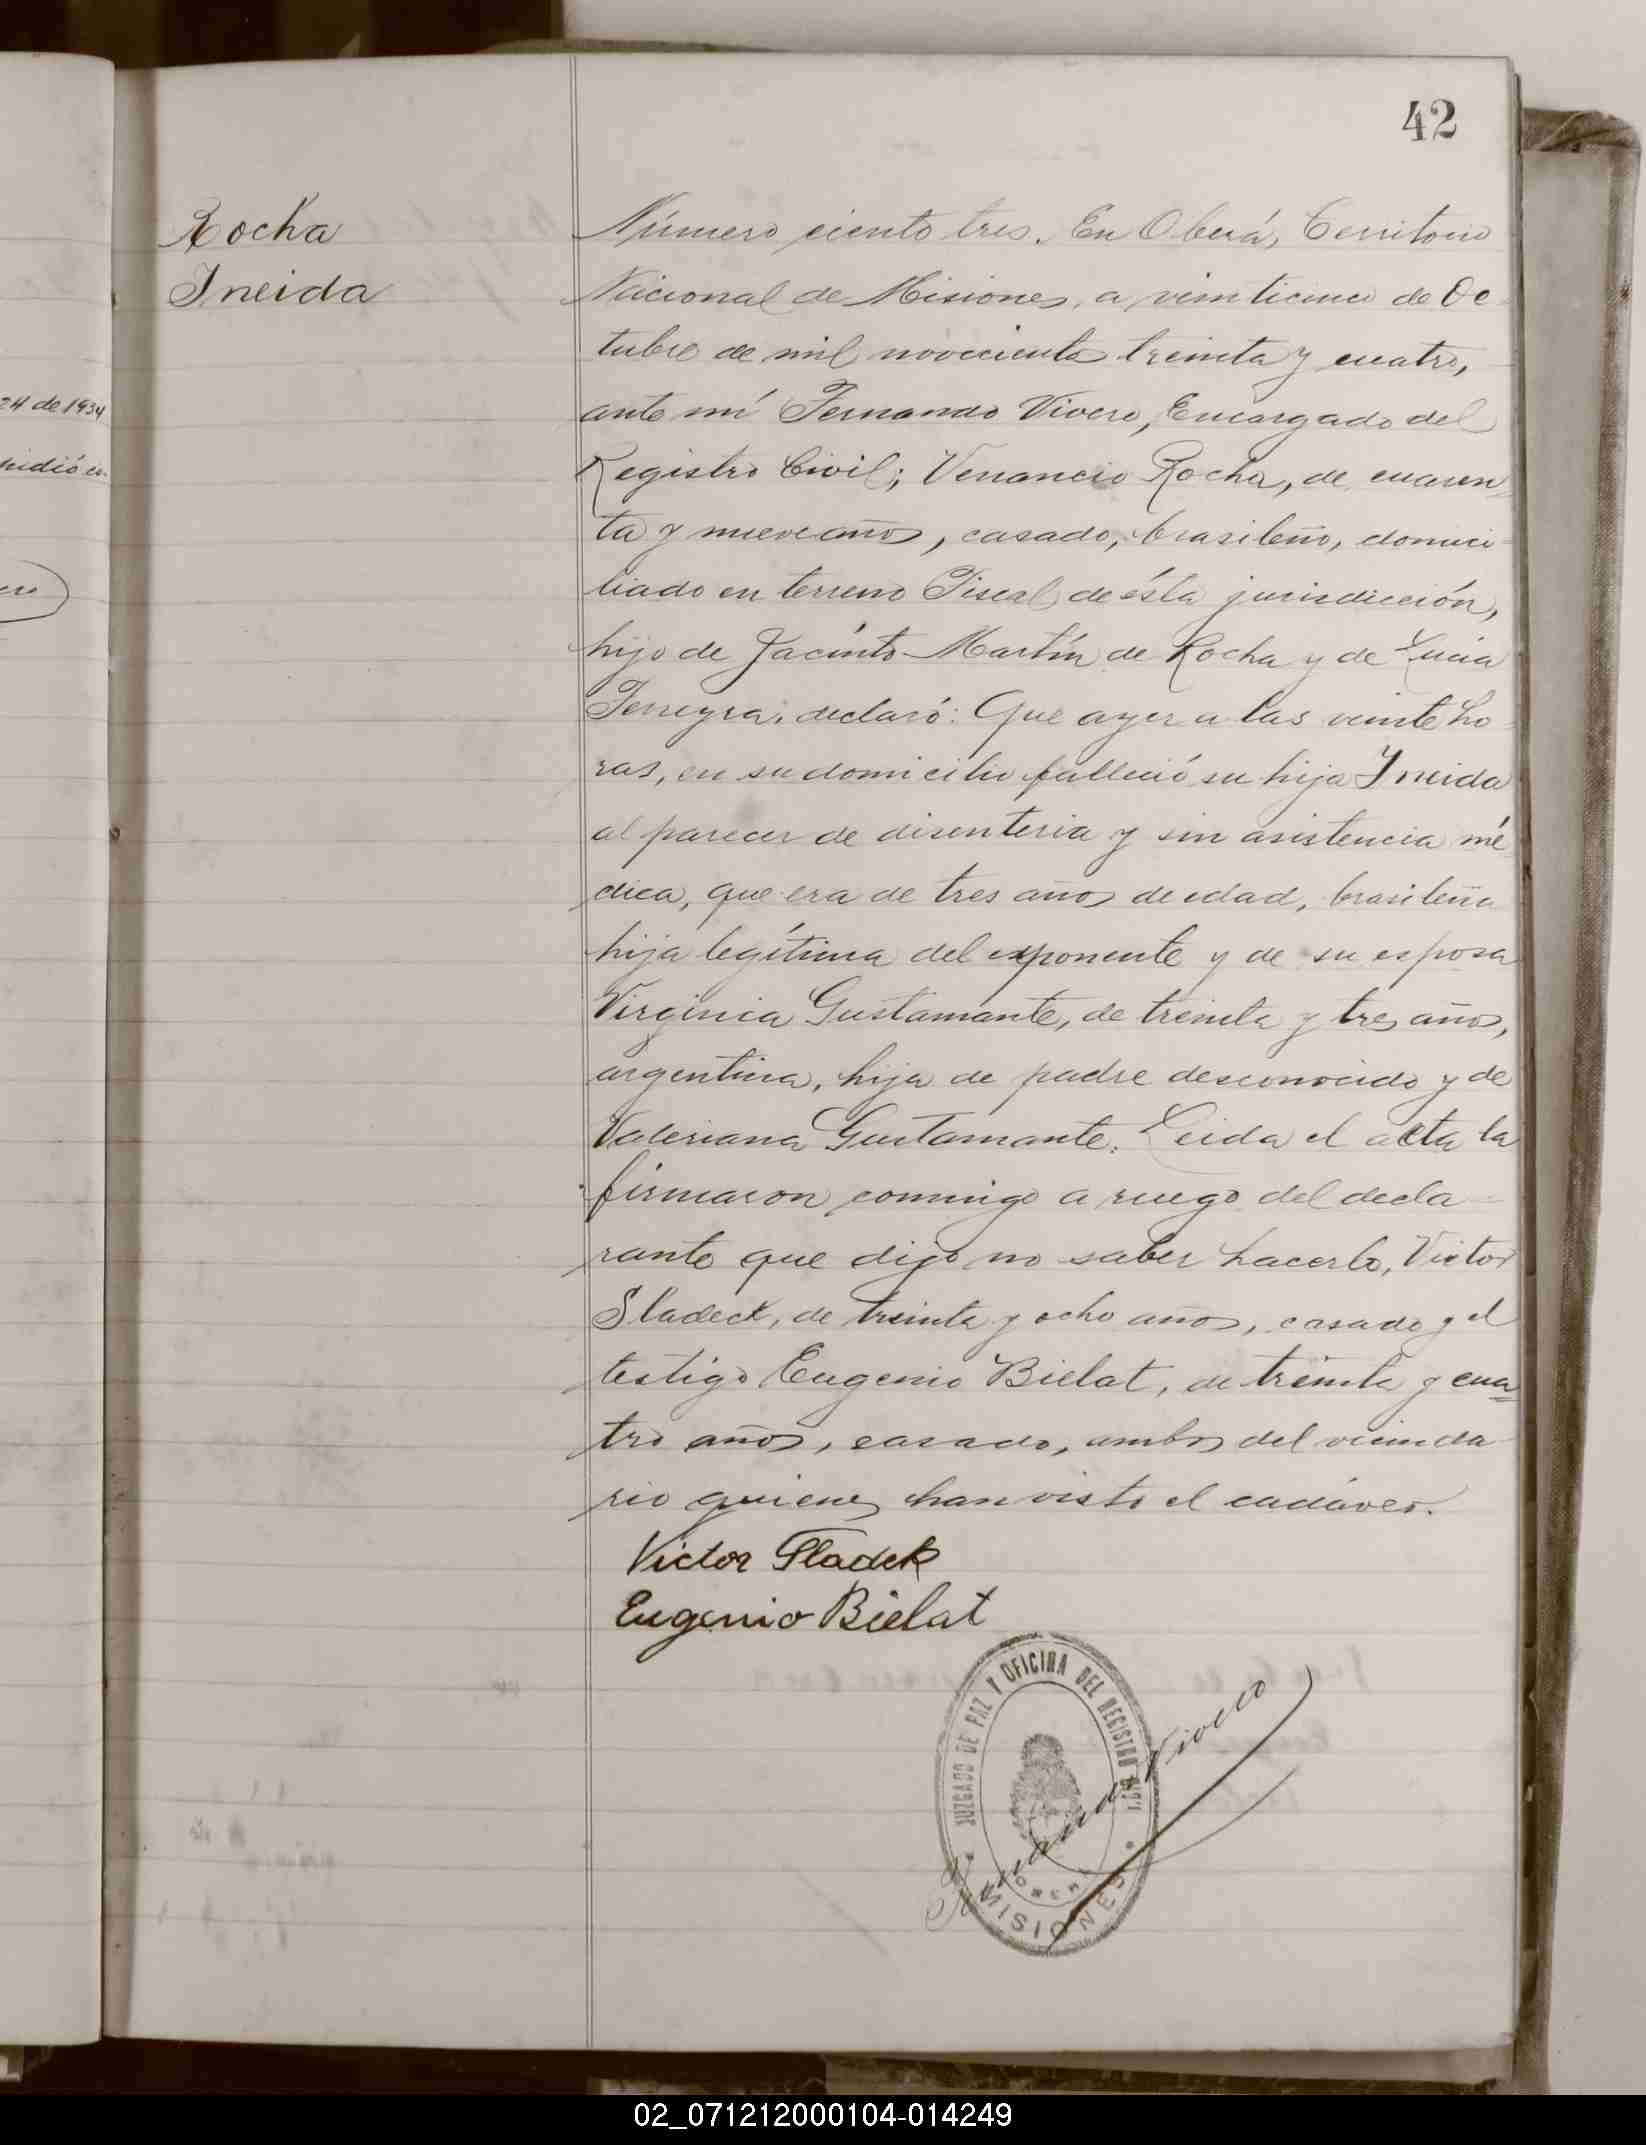 42
Rocha
Ineida
24 de 1934
Número ciento tres. En Oberá, Territorio
Nacional de Misiones, a veinticinco de Oc-
tubre de mil novecientos treinta y cuatro,
ante mí Fernando Vivero, Encargado del
Registro Civil; Venancio Rocha, de cuaren-
ta y nueve años, casado, brasileño, domici-
liado en terreno Fiscal de ésta jurisdicción,
hijo de Jacinto Martín de Rocha y de Lucia
Ferreyra, declaró: Que ayer a las veinte ho-
ras, en su domicilio falleció su hija Ineida
al parecer de disenteria y sin asistencia mé-
dica, que era de tres años de edad, brasileña
hija legítima del exponente y de su esposa
Virginia Gustamante, de treinta y tres años,
argentina, hija de padre desconocido y de
Valeriana Gustamante. Leida el acta la
firmaron conmigo a ruego del decla-
rante que dijo no saber hacerlo, Victor
Sladeck, de treinta y ocho años, casado y el
testigo Eugenio Bielat, de treinta y cua=
tro años, casado, ambos del vecinda-
rio quienes han visto el cadáver.
Victor Sladek
Eugenio Bielat
JUZGADO DE PAZ Y OFICINA DEL REGISTRO CIVIL
OBERÁ
MISIONES
Fernando Vivero
02_071212000104-014249